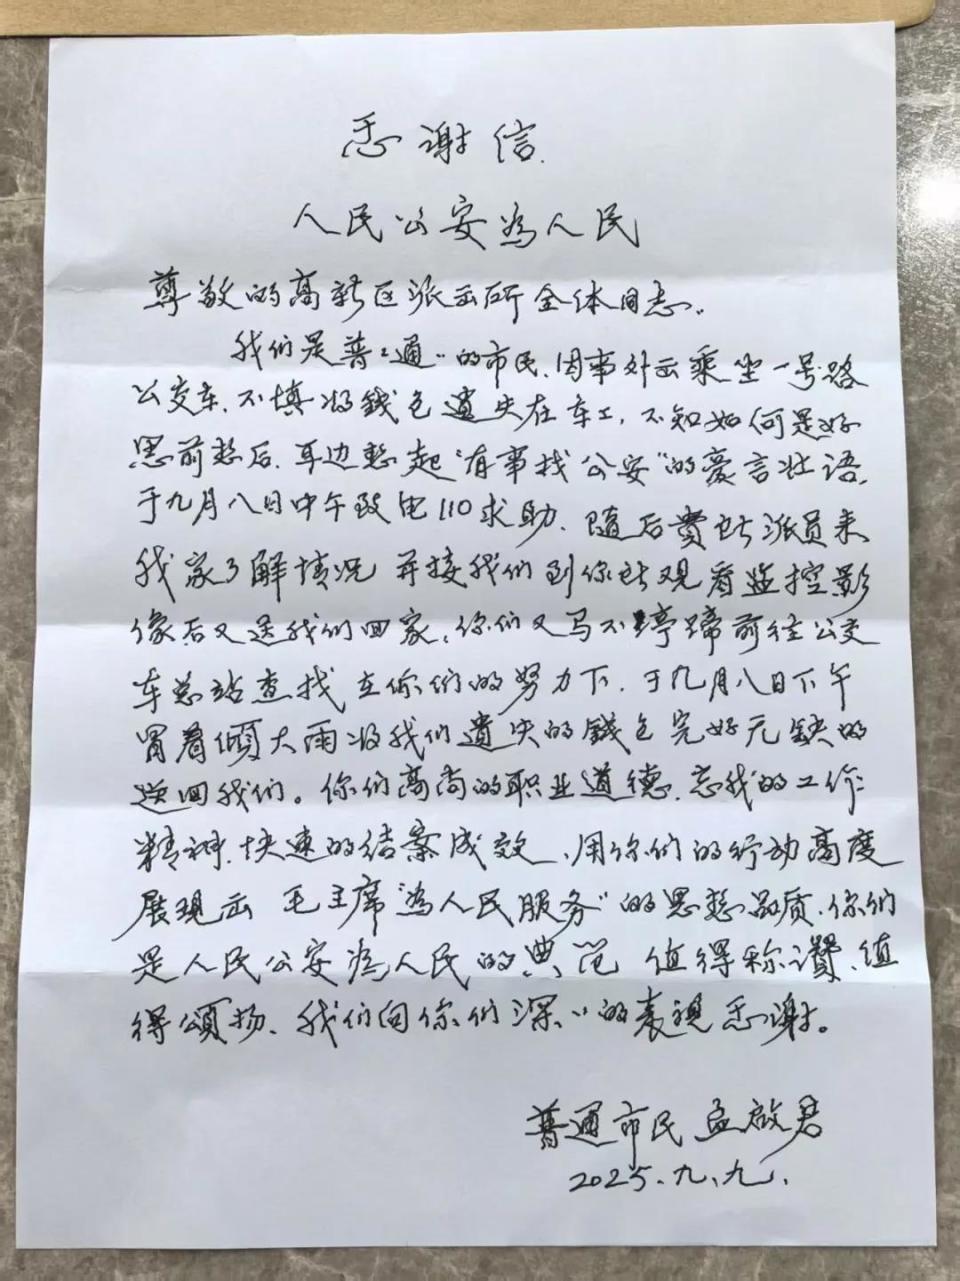 感谢信.
人民公安為人民
尊敬的高新区派出所全体同志.
我们是普普通通的市民.因事外出乘坐一号路
公交车.不慎将錢包遗失在车上,不知如何是好
思前想后.耳边想起"有事找公安"的豪言壮语.
于九月八日中午致电110求助.随后貴站派员来
我家了解情况并接我们到你站观看监控影
像后又送我们回家.你们又马不停蹄前往公交
车总站查找在你们的努力下.于九月八日下午
冒着傾大雨将我们遗失的錢包完好无缺的
送回我们。你们高尚的职业道德.忘我的工作
精神.快速的结案成效、用你们的行动高度
展现出毛主席"為人民服务"的思想品质.你们
是人民公安為人民的典范值得称讚、值
得頌扬、我们向你们深深的表現感谢。
普通市民 孟啟君
2025.九.九.